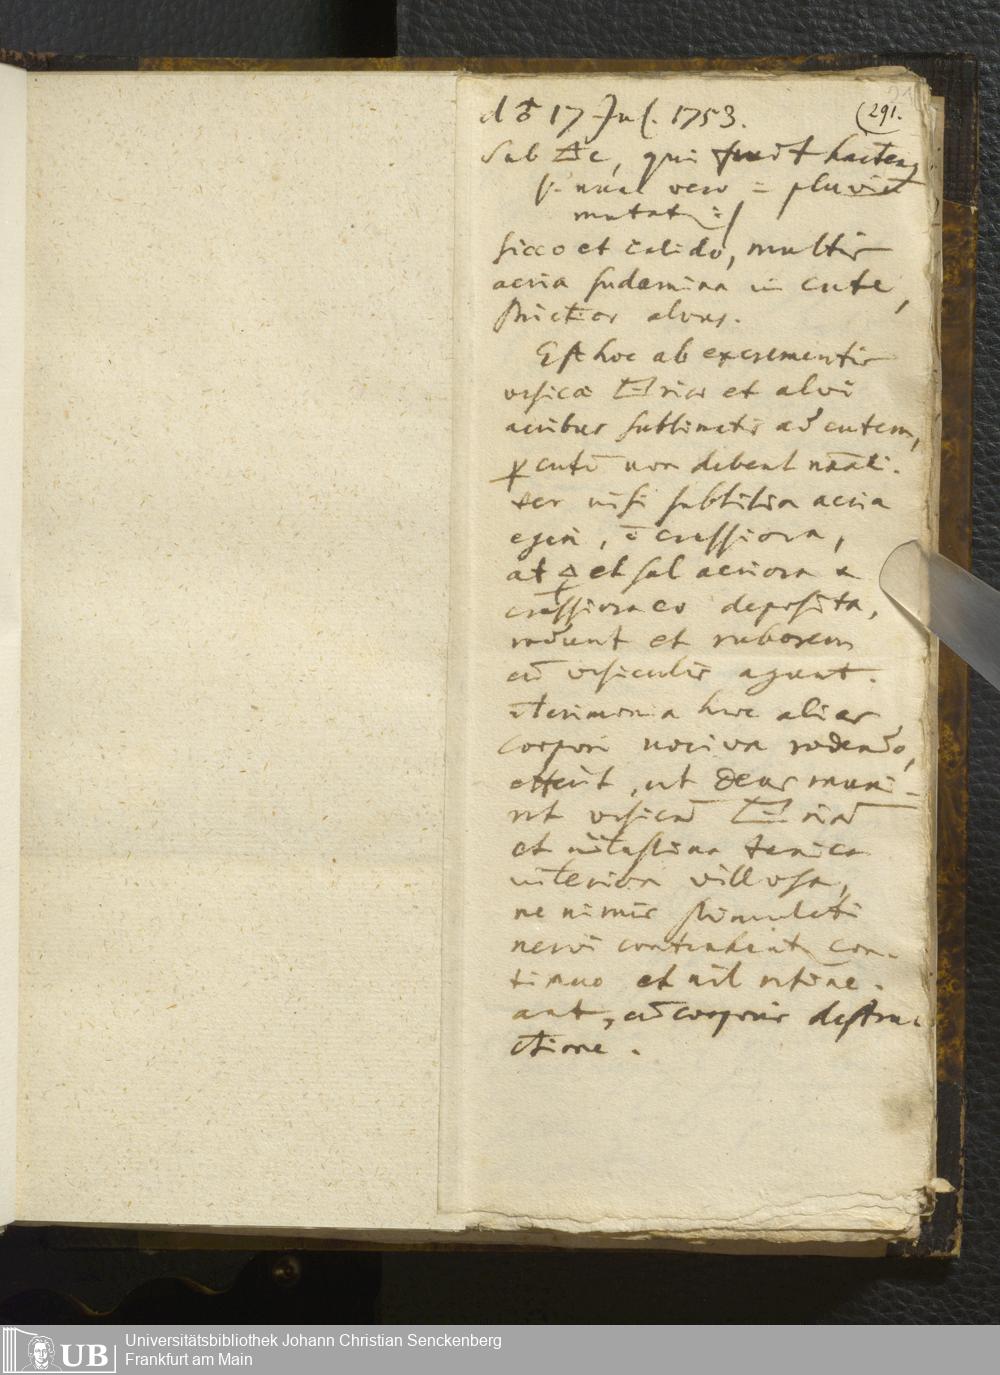 d ♂ 17 Jul. 1753. (291.
Sub 🜁e, qui fuit hacteng
nunc vero = pluviâ
mutat :/
sicco et calido, multis
acria sudamina in cute,
strictior alvus.
Est hoc ab excrementis
vesicæ et alvi
acribus sublimatis ad cutem,
cutē non debent
ter nisi subtilia acria
crassiora,
at et sal acriora
crassiora eo deposita,
rodunt et ruborem
cū vesiculis agunt.
Acrimonia hæc alias
corpori nociva rodendo,
effecit, ut Deus muni-
vit vesicā
et intestina tunica
interiori villosa,
ne nimis stimulati
nervi contrahant con-
tinuo et nil retine-
ant, cū corporis destru
ctione.
Universitätsbibliothek Johann Christian Senckenberg
Frankfurt am Main
UB